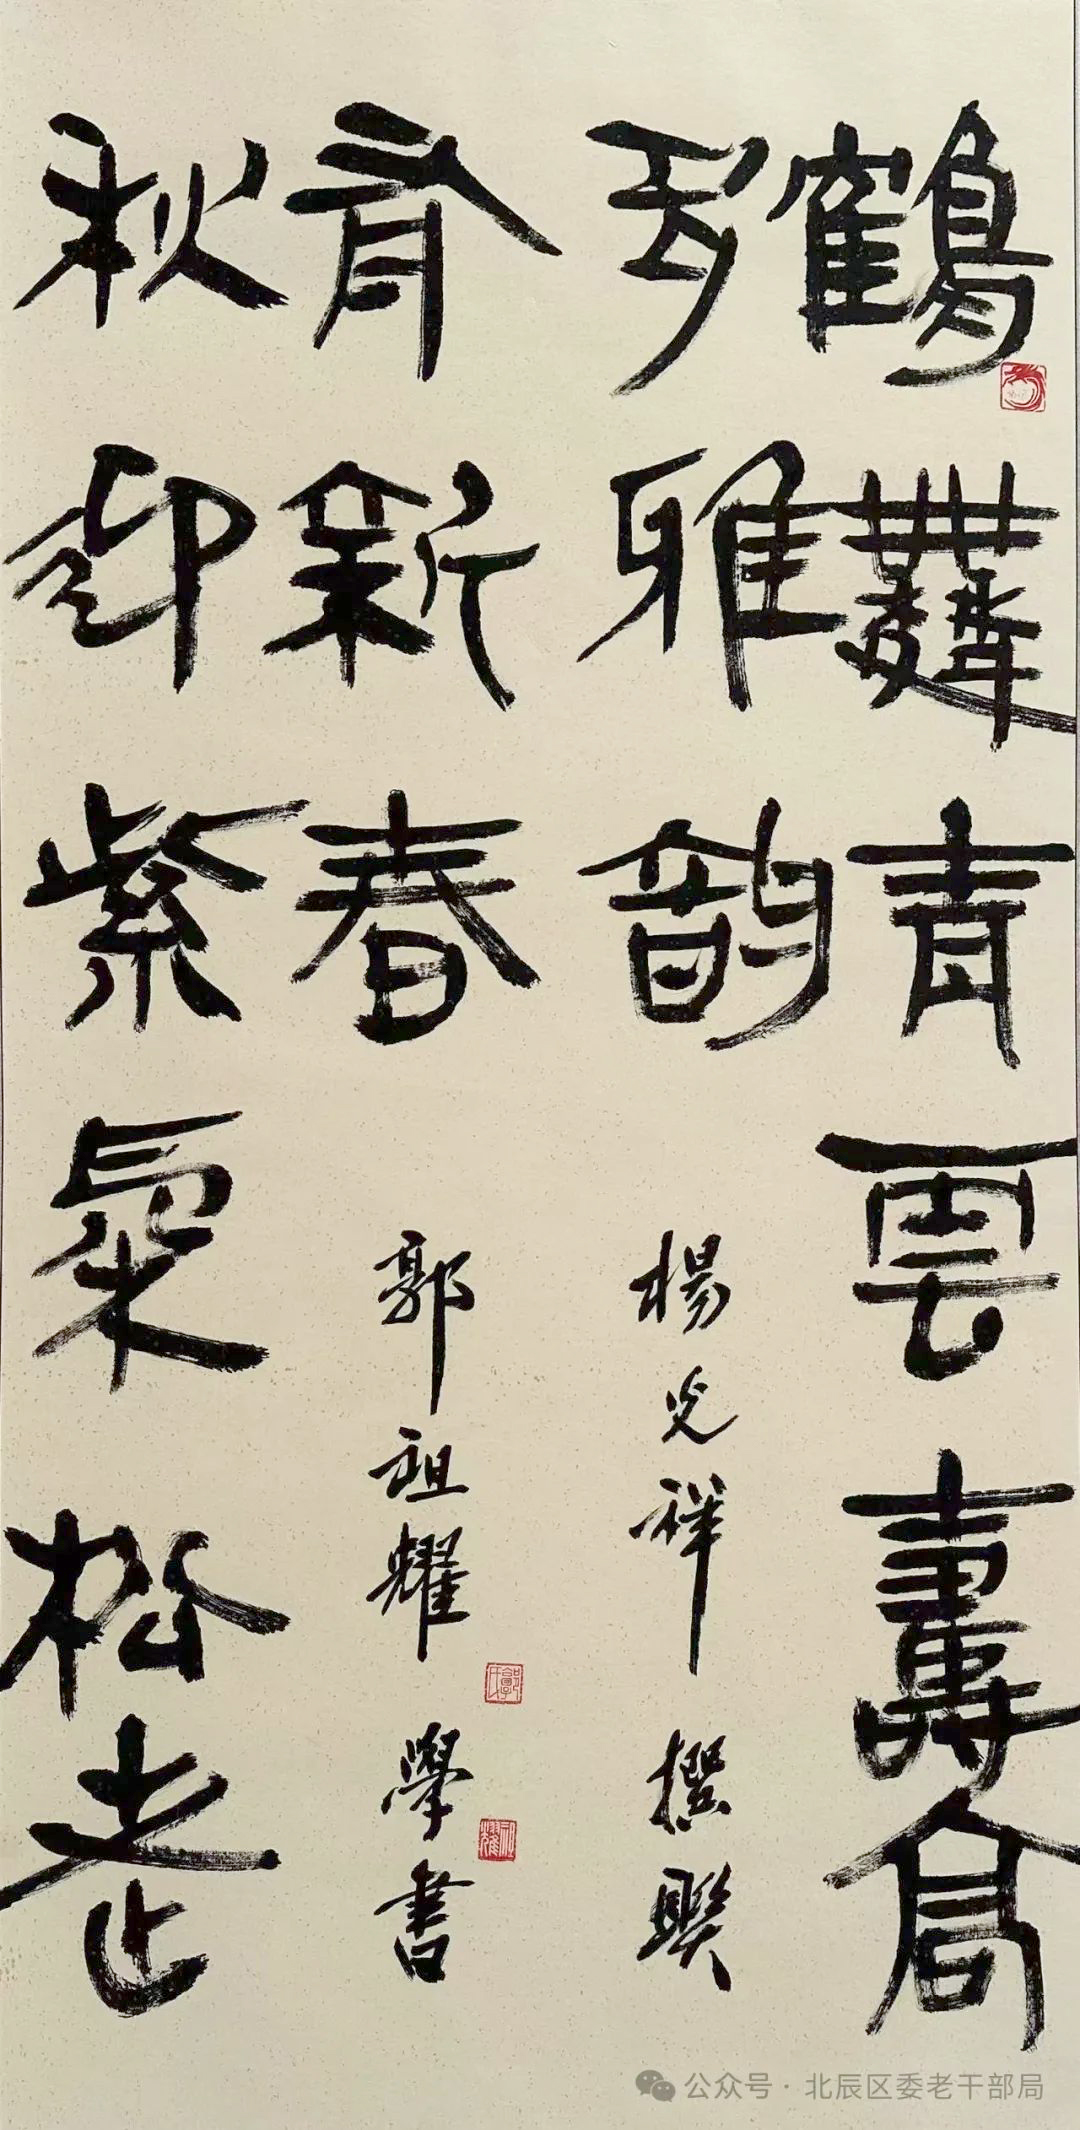 鶴舞青雲壽高
雅韵
楊光祥撰聯
新春
郭祖耀學書
秋印紫氣松老
郭氏
祖耀
公众号·北辰区委老干部局